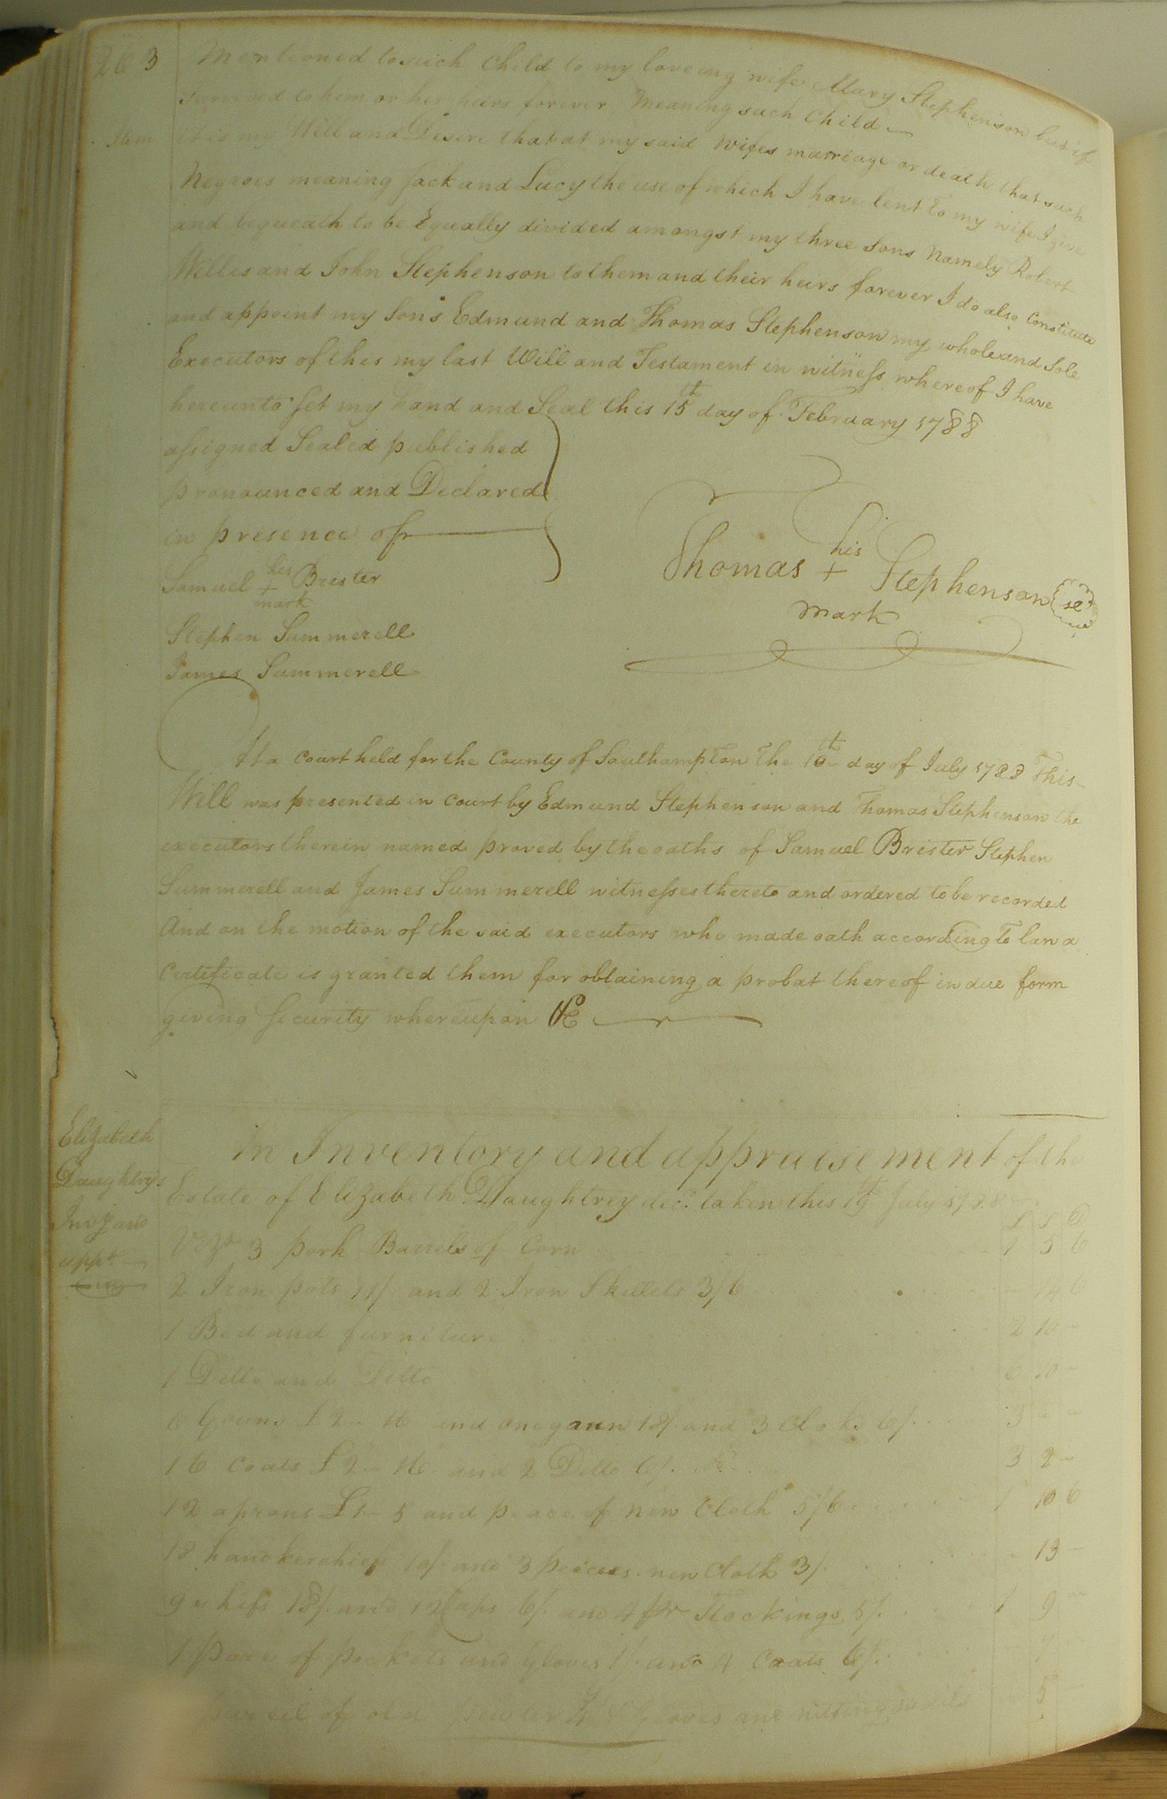 263 Mentioned to such Child to my loveing wife Mary Stephenson but if
survived to him or her heirs forever meaning such Child
Item it is my Will and Desire that at my said Wifes marriage or death that such
Negroes meaning Jack and Lucy the use of which I have lent to my wife I give
and bequeath to be Equally divided amongst my three Sons Namely Robert
Willis and John Stephenson to them and their heirs forever I do also Constitute
and appoint my Sons Edmund and Thomas Stephenson my whole and Sole
Executors of this my last Will and Testament in witness whereof I have
hereunto set my hand and Seal this 15th day of February 1788
assigned Sealed published
pronounced and Declared
in presence of
Samuel his + mark Brister
Thomas his + mark Stephenson
Stephen Summerell
James Summerell
At a Court held for the County of Southampton the 10th day of July 1788 This
Will was presented in Court by Edmund Stephenson and Thomas Stephenson the
executors therein named proved by the oaths of Samuel Brister Stephen
Summerell and James Summerell witnesses thereto and ordered to be recorded
And on the motion of the said executors who made oath according to law a
Certificate is granted them for obtaining a probat thereof in due form
giving Security whereupon &c
Elizabeth
Daughtry's
Invy and
appt
An Inventory and appraisement of the
Estate of Elizabeth Daughtrey decd taken this July 1788
3 pork Barrels of Corn 1 5 6
2 Iron pots 11/ and 2 Iron Skillets 3/6 14 6
1 Bed and furniture 2 10 -
1 Ditto and Ditto 10 -
Gowns £2 - 16 and one gown 18/ and 3 Cloks 6/ 3
16 Coats £2 - 16 and 2 Ditto 6/ 3 2 -
12 aprons £1 - 5 and peace of new Cloth 5/6 1 10 6
18 handkerchiefs 10/ and 3 peices new Cloth 3/ 13 -
9 shifs 18/ and 12 Caps 6/ and 4 pr Stockings 5/ 1 9 -
1 pare of pockets and gloves 1/ and 4 Coats 6/ 7
of old 5 -